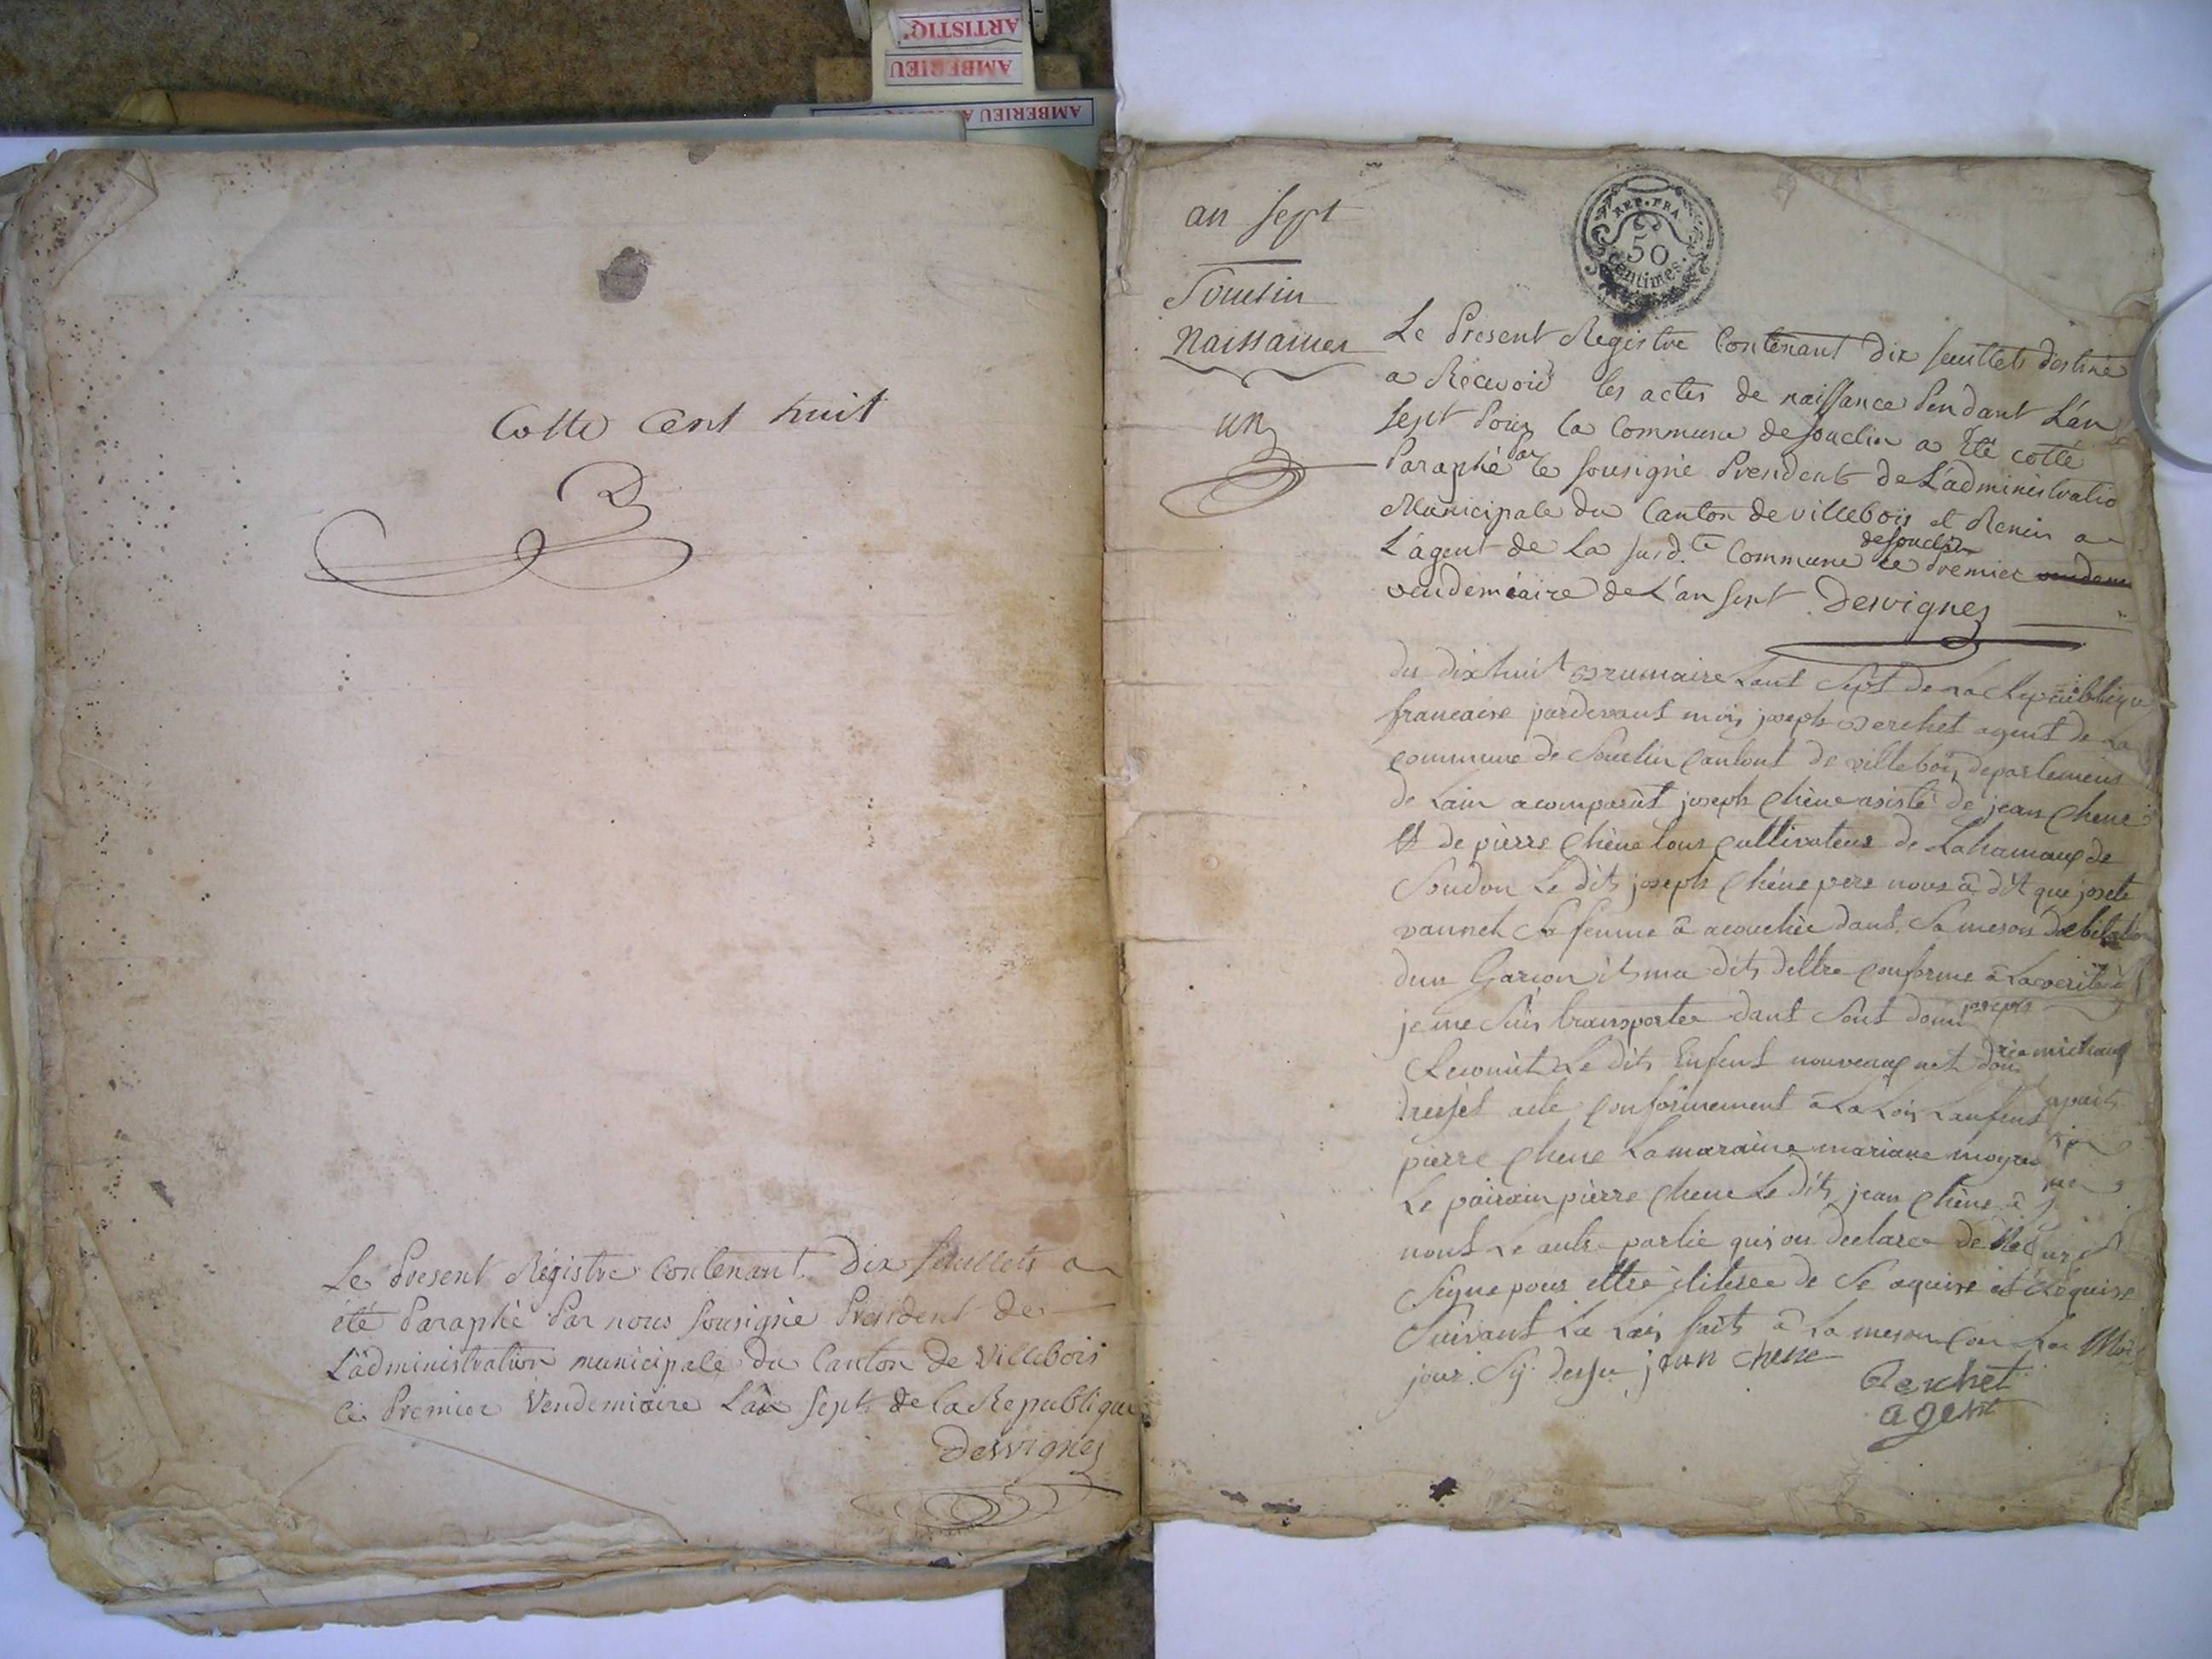 ARTISTIQ'
AMBERIEU
AMBERIEU A
Cotte Cent huit
Le Present Régistre Contenant Dix feuillets a
été Paraphé Par nous Sousigné President de
L'administration municipale du Canton de Villebois
Ce Premier Vendemiaire L'an Sept de la Republique
Desvignes
an Sept
Souclin
Naissances
un
REP. FRA.
50
Centimes.
Le Present Registre Contenant Dix feuillets destiné
a Récevoir les actes de naissance Pendant L'an
Sept Pour la Commune de Souclin a Eté cotté
Paraphé Par le Sousigné President de L'administratio
Municipale du Canton de villebois et Remis a
L'agent de La susd.te Commune de Souclin ce Premier
vendemiaire de L'an Sept Desvignes
du dix huit Brumaire Lant Sept de La Republique
francaise pardevant mois joseph Berchet agent de La
commune de Souclin cantont de villebois departement
de Lain acomparut joseph Chene asisté de jean Chene
et de pierre Chene tous cultivateur de Lahamaux de
Soudon Le dits joseph Chene pere nous à dit que josete
vannet Sa femme à acouchée dant Sa meson dabitation
dun Garcon its ma dits dettre conforme à La verité
je me Suis transportee dant Sont domi
Reconnit Le dits Enfent nouveaux net
dresset acte conformement à La Lois Lanfent
pierre Chene La maraine mariane
Le pairain pierre Chene Le dits jean Chene à
nont Le autre partie qui on declaree de
Signe pour ettre de Se aquire et Requise
Suivant La Lois faits à La meson
jour Sy dessu jean chene
Berchet
agent